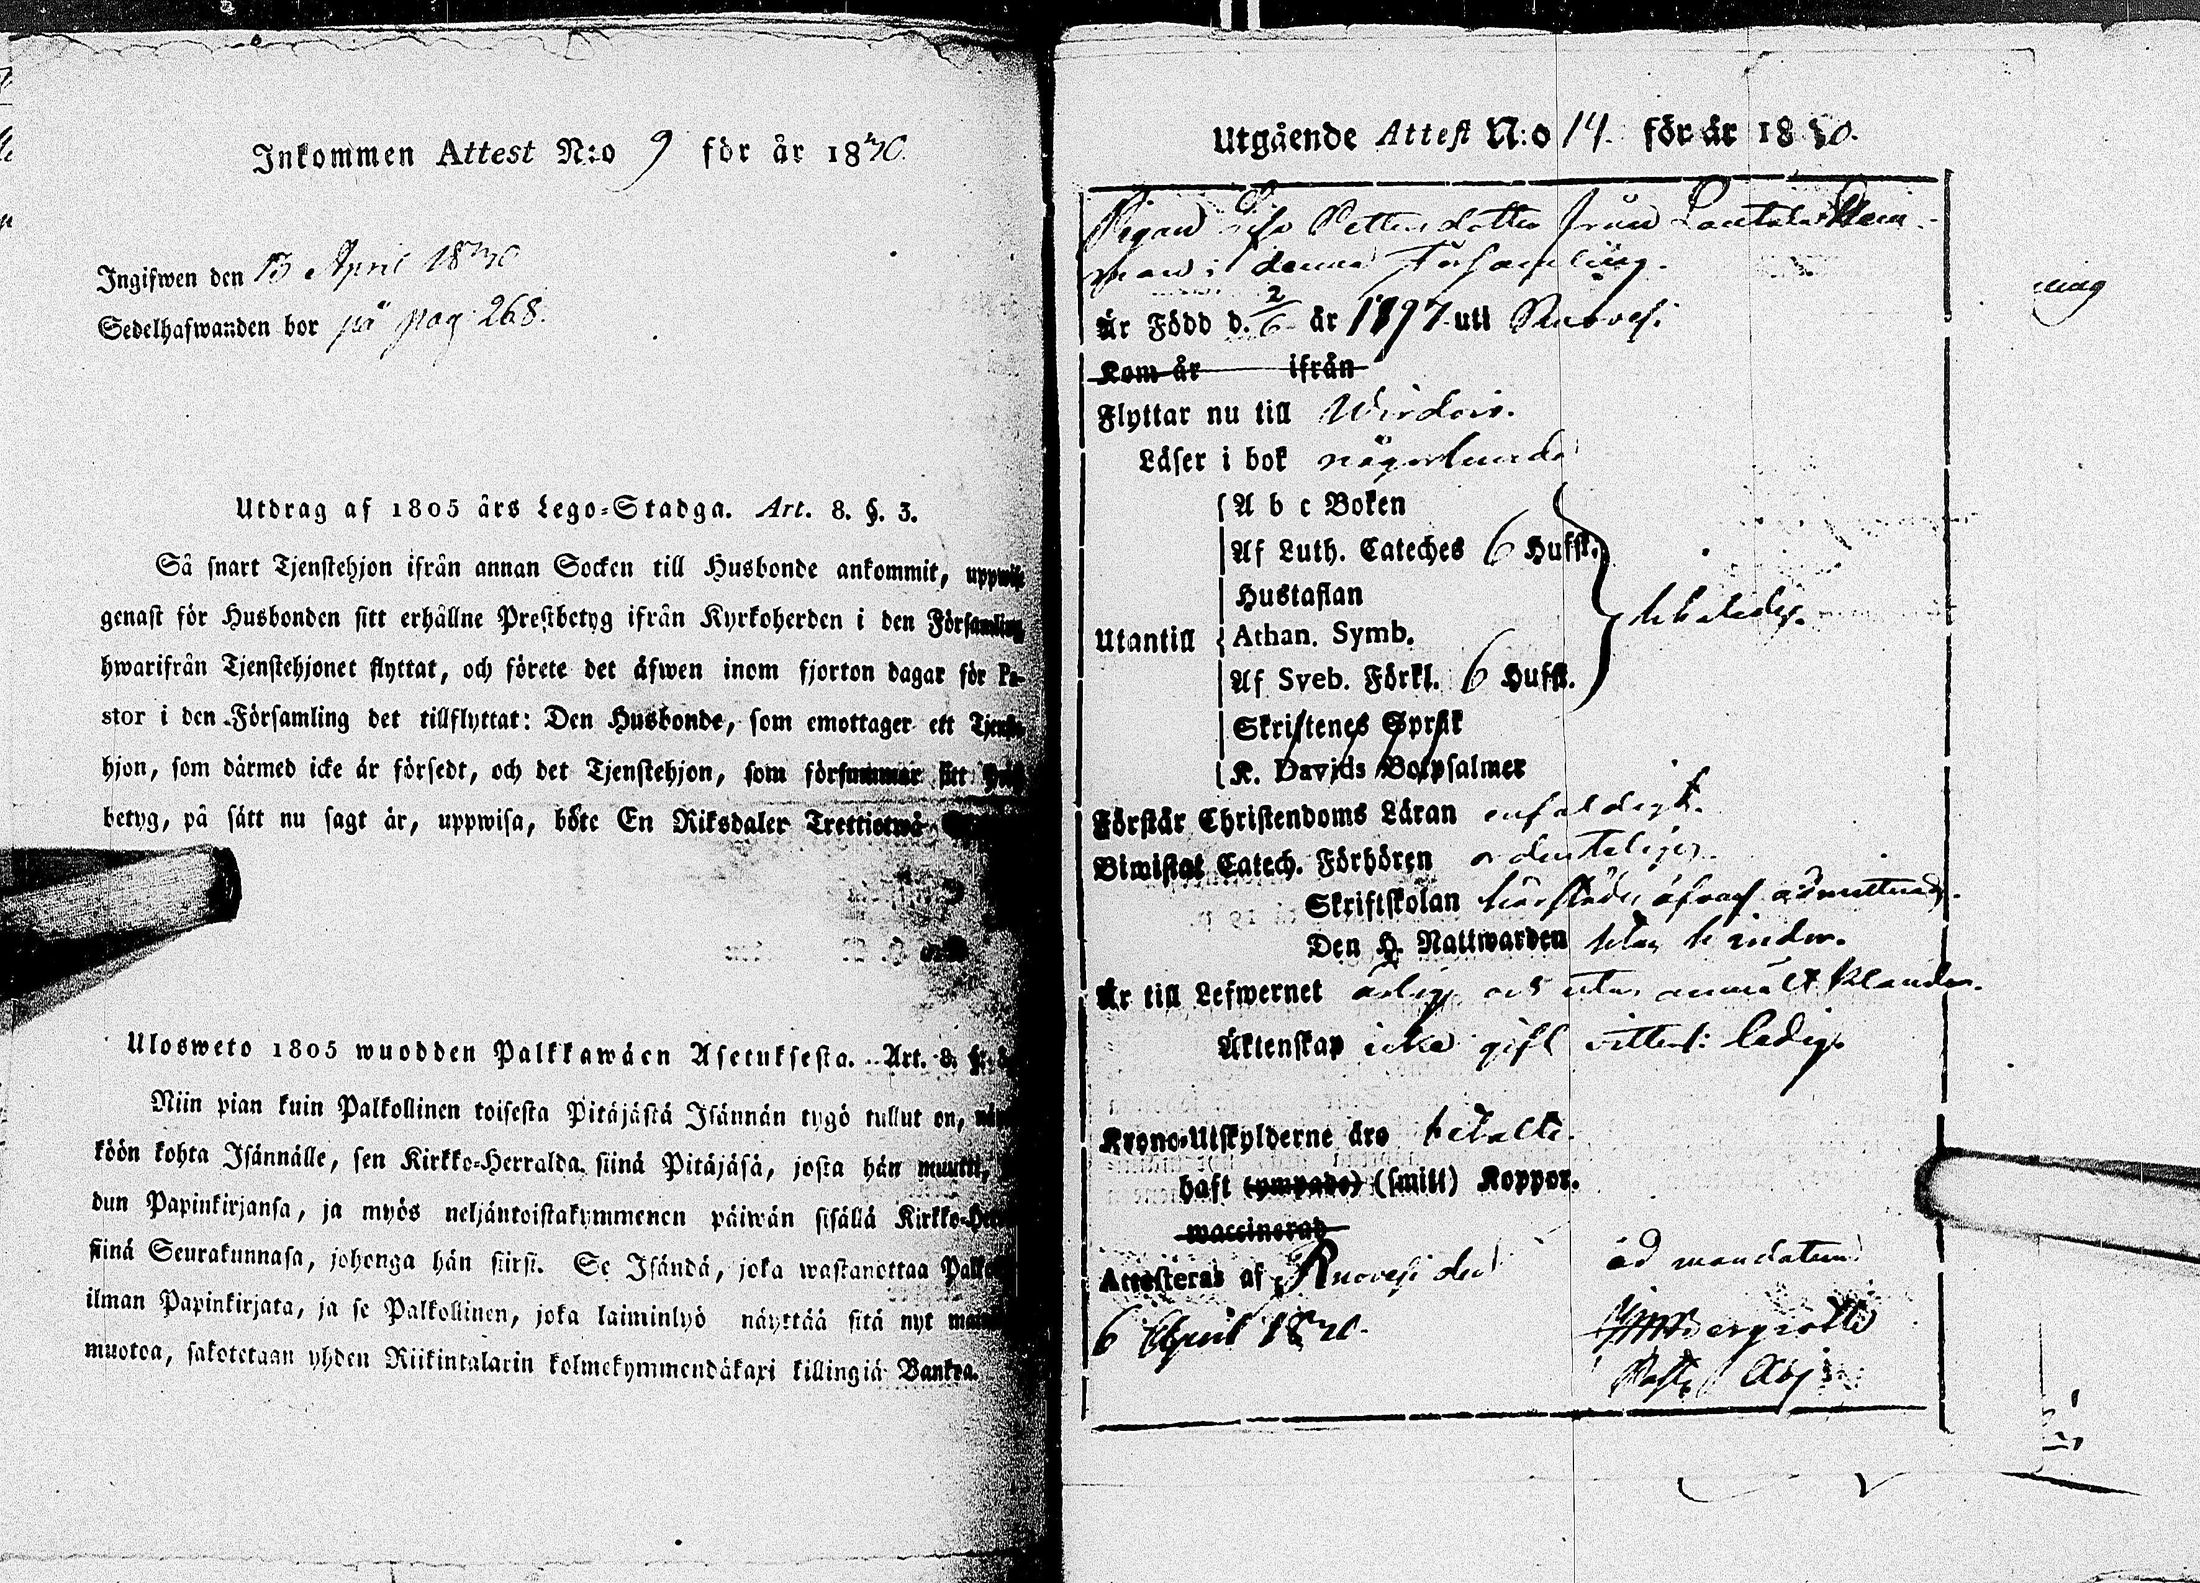 Inkommen Attest N:o 9 för år 1840.
Ingifwen den 13 April 1840
Sedelhafwanden bor på pag: 268.
Utdrag af 1805 års Lego-Stadga. Art. 8. §. 3.
Så snart Tjenstehjon ifrån annan Socken till Husbonde ankommit, uppwise
genast för Husbonden sitt erhållne Prestbetyg ifrån Kyrkoherden i den Församling
hwarifrån Tjenstehjonet flyttat, och förete det äfwen inom fjorton dagar för Pa-
stor i den Församling det tillflyttat: Den Husbonde, som emottager ett Tjenste-
hjon, som därmed icke är försedt, och det Tjenstehjon, som försummar sitt
betyg, på sätt nu sagt är, uppwisa, böte En Riksdaler Trettiotwå
Ulosweto 1805 wuodden Palkkawäen Asetuksesta. Art. 8. §.
Niin pian kuin Palkollinen toisesta Pitäjästä Isännän tygö tullut on,
köön kohta Isännälle, sen Kirkko-Herralda siinä Pitäjäsä, josta hän muutti,
dun Papinkirjansa, ja myös neljäntoistakymmenen päiwän sisällä Kirkko-
siinä Seurakunnasa, johonga hän siirsi. Se Isändä, joka wastanottaa
ilman Papinkirjata, ja se Palkollinen, joka laiminlyö näyttää sitä nyt
muotoa, sakotetaan yhden Riikintalarin kolmekymmendäkaxi killingiä Bankra.
Utgående Attest N:o 14. för år 1840.
Pigan Lisa Petters dotter från
i denna Församling.
Är Född d. 2/6 år 1897 uti Ruovesi
Kom år ifrån
Flyttar nu till Wirdois.
Läser i bok någorlunda
A b c Boken
Af Luth. Cateches 6 Hufst.
Hustaflan
Utantill Athan. Symb.
Af Sveb. Förkl. 6 Hufst.
Skriftenes Språk
K. Davids Botpsalmer
Förstår Christendoms Läran enfaldigt.
Biwistat Catech. Förhören ordenteligen.
Skriftskolan härstädes admitterad.
Den H. Nattwarden utan hinder.
Är till Lefwernet ärlig och utan anmält klander.
Äktenskap icke gift ledig.
Krono-Utskylderne äro betalte.
haft (ympade) (smitt) Koppor.
waccinerad
Attesteras af Ruovesi den ad mandatum
6 April 1840.